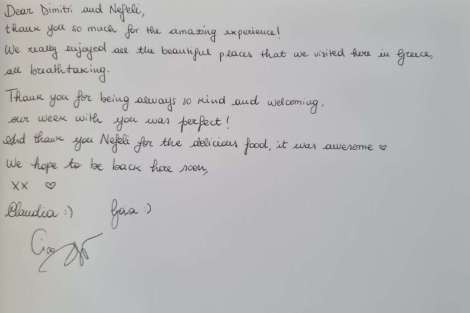 Dear Dimitri and Nefeli,
thank you so much for the amazing experience!
We really enjoyed all the beautiful places that we visited here in Greece,
all breathtaking.
Thank you for being always so kind and welcoming.
our week with you was perfect!
And thank you Nefeli for the delicious food, it was awesome ♡
We hope to be back here soon,
xx ♡
Claudia :) :)